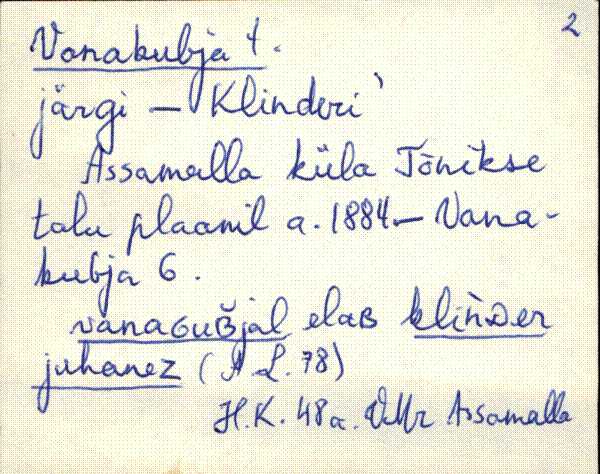 2
Vanakubja t.
järgi – Klinderi'
Assamalla küla Tõnikse
talu plaanil a. 1884 – Vana-
kubja 6.
vanaGuB̌jal elaB klińDer
juhanez (A L. 78)
H.K. 48a. VMr Assamalla